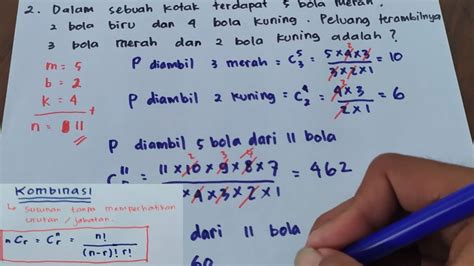 2. Dalam sebuah kotak terdapat 5 bola merah,
2 bola biru dan 4 bola kuning. Peluang terambilnya
3 bola merah dan 2 bola kuning adalah?
m = 5
b = 2
k = 4
+
n = 11
P diambil 3 merah = C⁵₃ = 5×4×3 / 3×2×1 = 10
P diambil 2 kuning = C⁴₂ = 4×3 / 2×1 = 6
P diambil 5 bola dari 11 bola
C¹¹ = 11×10×9×8×7 / ×4×3×2×1 = 462
2 3 4
dari 11 bola
60
Kombinasi
↳ Susunan tanpa memperhatikan
urutan / jabatan.
nCr = Cⁿᵣ = n! / (n-r)! r!